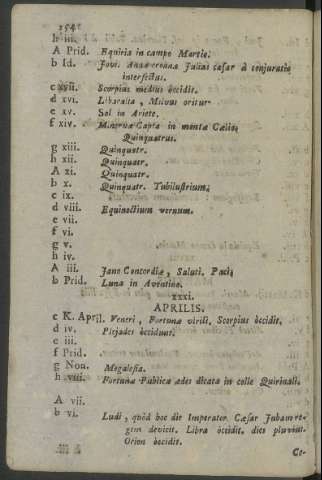 154
h iii.
A Prid. Equiria in campo Martio.
b Id. Jovi. Annæ erennæ Julius cæsar à conjuratis
interfectus.
c xvii. Scorpius medius occidit.
d xvi. Liberalia, Milvus oritur
e xv. Sol in Ariete.
f xiv. Minervæ Capta in monte Cælio,
Quinquatrus.
g xiii. Quinquatr.
h xii. Quinquatr.
A xi. Quinquatr.
b x. Quinquatr. Tubilustrium.
c ix.
d viii. Equinoctium vernum.
e vii.
f vi.
g v.
h iv.
A iii. Jano Concordiæ, Saluti. Paci,
b Prid. Luna in Aventino.
xxxi.
APRILIS.
c K. April. Veneri, Fortunæ virili, Scorpius occidit.
d iv. Plejades occidunt.
e iii.
f Prid.
g Non. Megalesia.
h viii. Fortunæ Publicæ ædes dicata in colle Quirinali.
A vii.
b vi. Ludi, quòd hoc die Imperator Cæsar Jubam re-
gem devicit. Libra occidit. dies pluvius.
Orion occidit.
Ce-